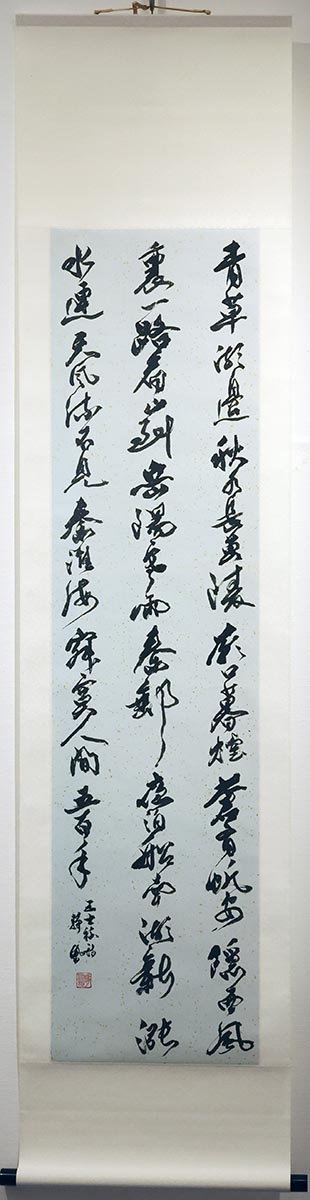 青草湖邊秋水長黃陵廟口暮煙蒼布帆安隱西風
裏一路看山到岳陽寒雨秦郵夜泊船南湖新漲
水連天風流不見秦淮海寂寞人間五百年
王士禛詩